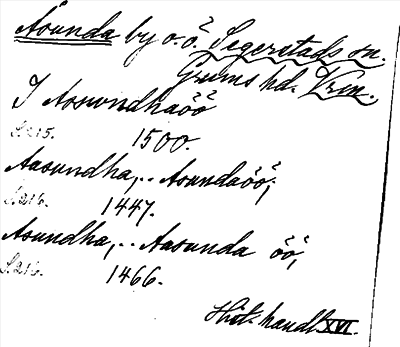 Åsunda by o. ö. Segerstads sn.
Grums hd. Vrm.
I Aosundhaöö
S. 215. 1500.
Aasundha, . . Asundaöö;
S. 216. 1447.
Asundha, . . Aasunda öö,
S. 216. 1466.
Hist. handl. XVI.